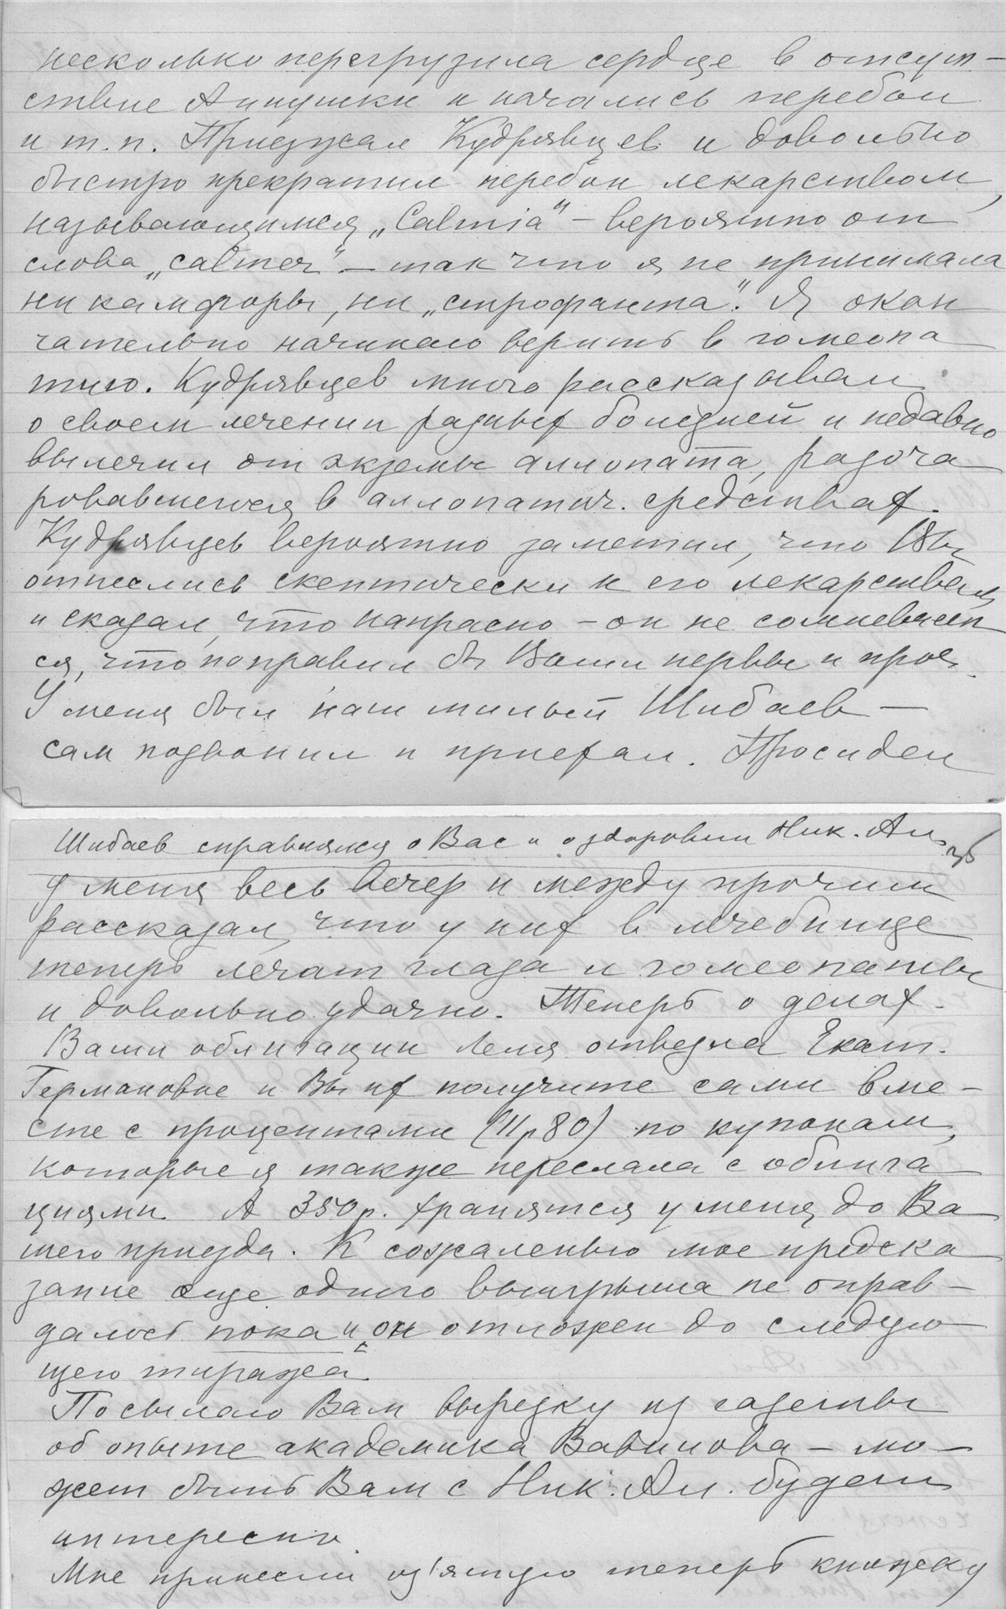 несколько перегрузила сердце в отсут-
ствие Аннушки и начались перебои
и т.п. Приезжал Кудрявцев и довольно
быстро прекратил перебои лекарством,
называющимся „Calmia" – вероятно от
слова „calmer" – так что я не принимала
ни камфоры, ни „строфанта". Я окон
чательно начинаю верить в гомеопа
тию. Кудрявцев много рассказывал
о своем лечении разных болезней и недавно
вылечил от экземы аллопата, разоча
ровавшегося в аллопатич. средствах.
Кудрявцев вероятно заметил, что Вы
отнеслись скептически к его лекарствам
и сказал, что напрасно – он не сомневает
ся, что поправил бы Ваши нервы и проч.
У меня был наш милый Шибаев –
сам позвонил и приехал. Просидел
Шибаев справлялся о Вас и о здоровии Ник. Ал.
у меня весь вечер и между прочим
рассказал, что у них в лечебнице
теперь лечат глаза и гомеопаты
и довольно удачно. Теперь о делах.
Ваши облигации Леля отвезла Екат.
Германовне и Вы их получите сами вме-
сте с процентами (11р80) по купонам,
которые я также переслала с облига
циями. А 350р. хранятся у меня до Ва
шего приезда. К сожаленью мое предска
зание еще одного выигрыша не оправ-
далось пока и „он отложен до следую
щего тиража"
Посылаю Вам вырезку из газеты
об опыте академика Вавилова – мо-
жет быть Вам с Ник. Ал. будет
интересно.
Мне принесли из'ятую теперь книжку